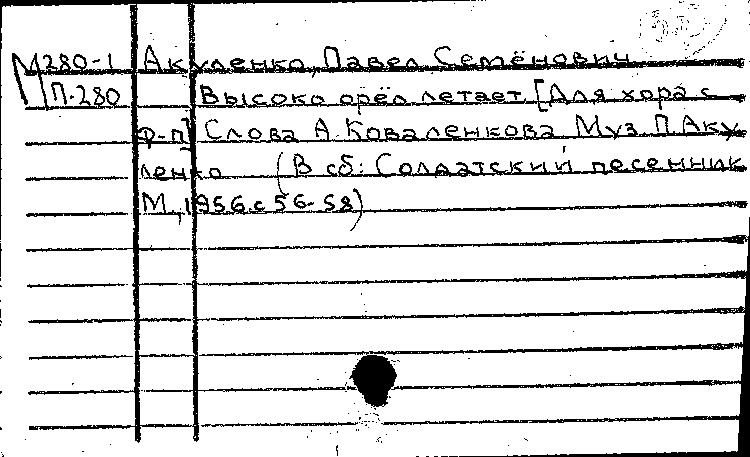 М280-1 Акуленко, Павел Семёнович
П-280 Высоко орёл летает. [Для хора с
ф-п] Слова А. Коваленкова Муз. П. Аку
ленко (В сб: Солдатский песенник
М., 1956. с 56-58)